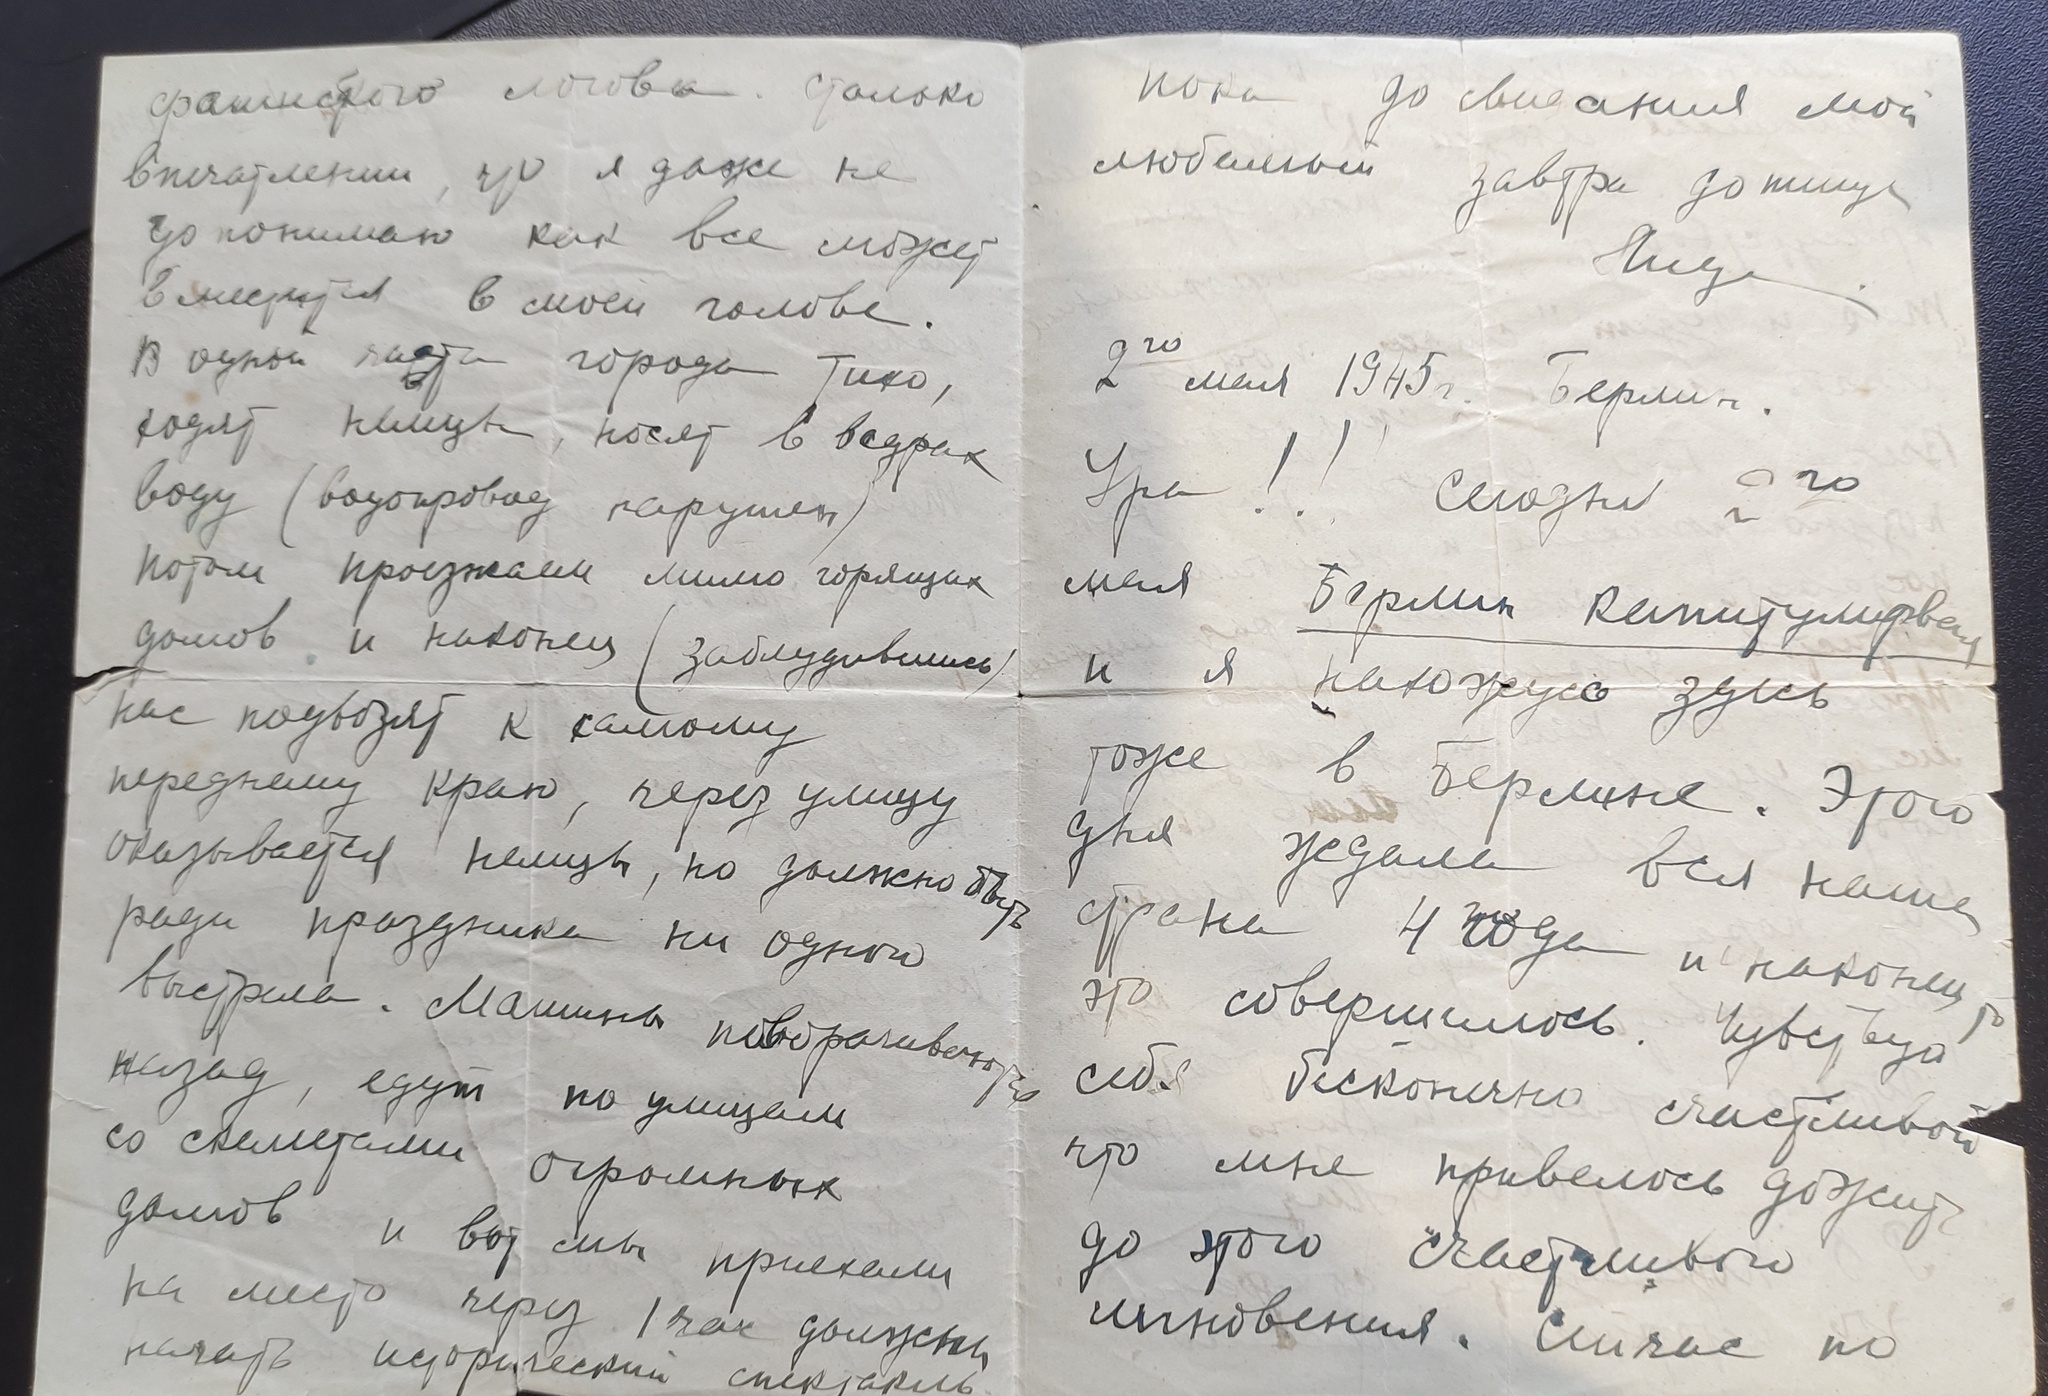 фашисткого логова. Столько
впечатлении, что я даже не
допонимаю как все может
вместится в моей голове.
В одной части города тихо,
ходят немцы, носят в ведрах
воду (водопровод нарушен)
потом проезжаем мимо горящих
домов и наконец (заблудившись)
нас подвозят к самому
переднему краю, через улицу
оказывается немцы, но должно быть
ради праздника ни одного
выстрела. Машины поворачивают
назад, едут по улицам
со скелетами огромных
домов и вот мы приехали
на место через 1 час должны
начать исторический спектакль
Пока до свидания мой
любимый завтра допишу
Лида.
2го мая 1945г. Берлин.
Ура!!! Сегодня 2го
мая Берлин капитулировал
и я нахожусь здесь
тоже в Берлине. Этого
дня ждала вся наша
страна 4 года и наконец то
это совершилось. Чувствую
себя бесконечно счастливой
что мне привелось дожить
до этого счастливого
мгновения. Сейчас по